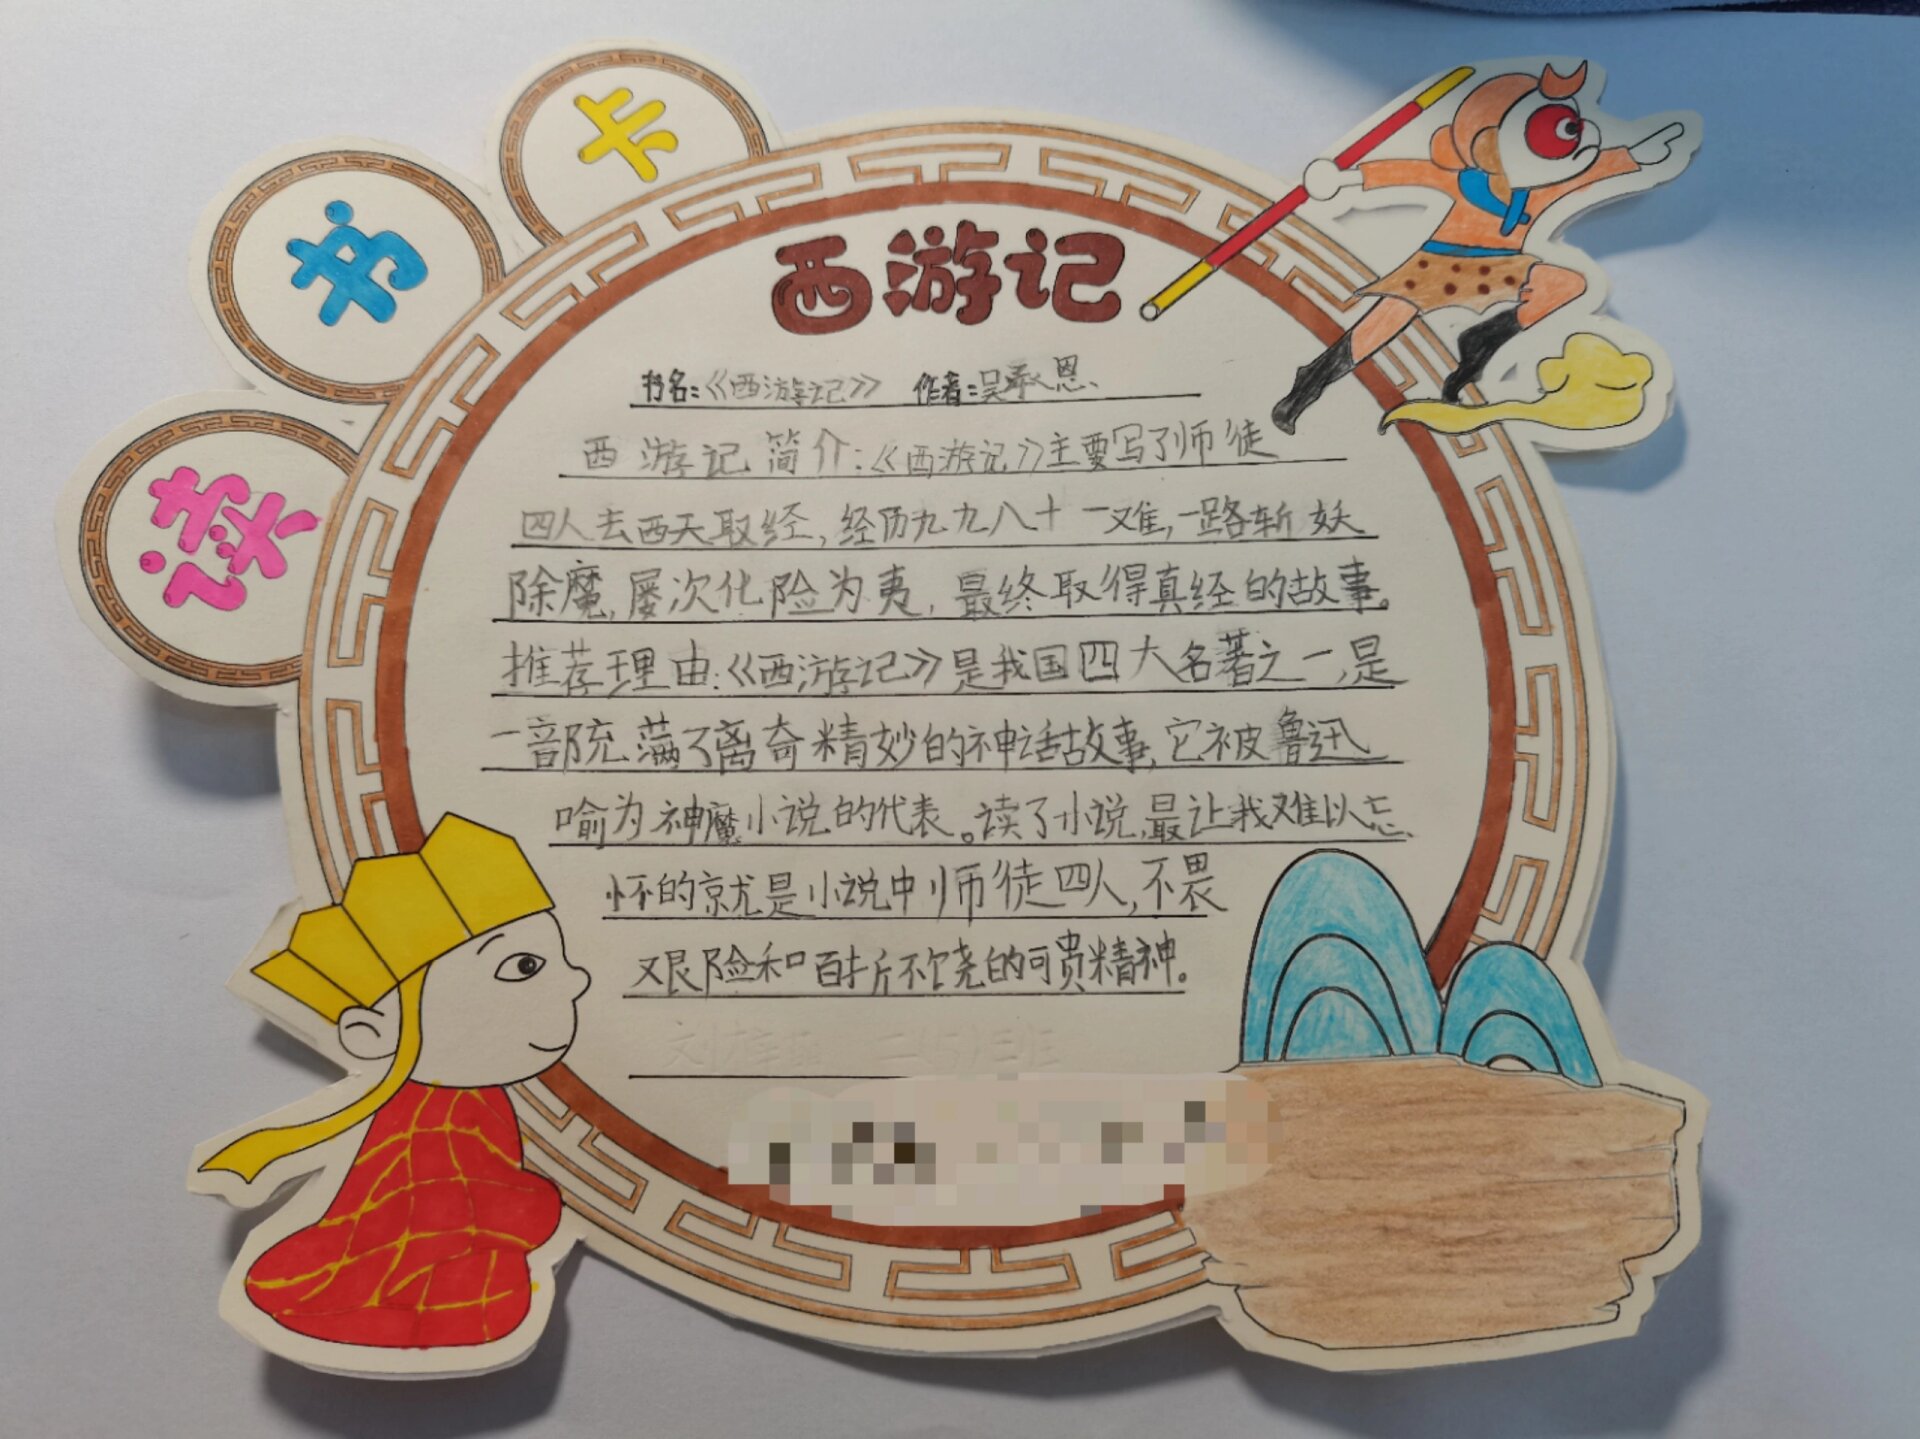 读书卡
西游记
书名:《西游记》 作者:吴承恩
西游记简介:《西游记》主要写了师徒
四人去西天取经,经历九九八十一难,一路斩妖
除魔,屡次化险为夷,最终取得真经的故事。
推荐理由:《西游记》是我国四大名著之一,是
一部充满了离奇精妙的神话故事,它被鲁迅
喻为神魔小说的代表。读了小说,最让我难以忘
怀的就是小说中师徒四人,不畏
艰险和百折不饶的可贵精神。